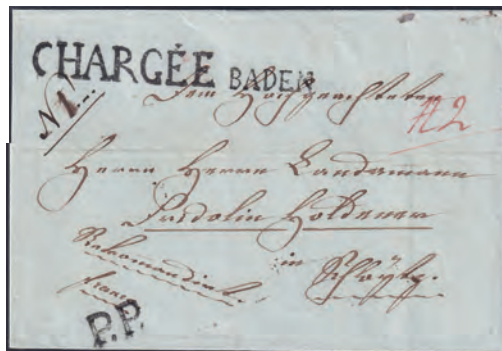 CHARGÉE BADEN
N 1
Dem Hochgeachteten
Herrn Herrn Landamann
Fridolin Holdener
in Schwÿtz.
Rekomandirt
franco
P.P.